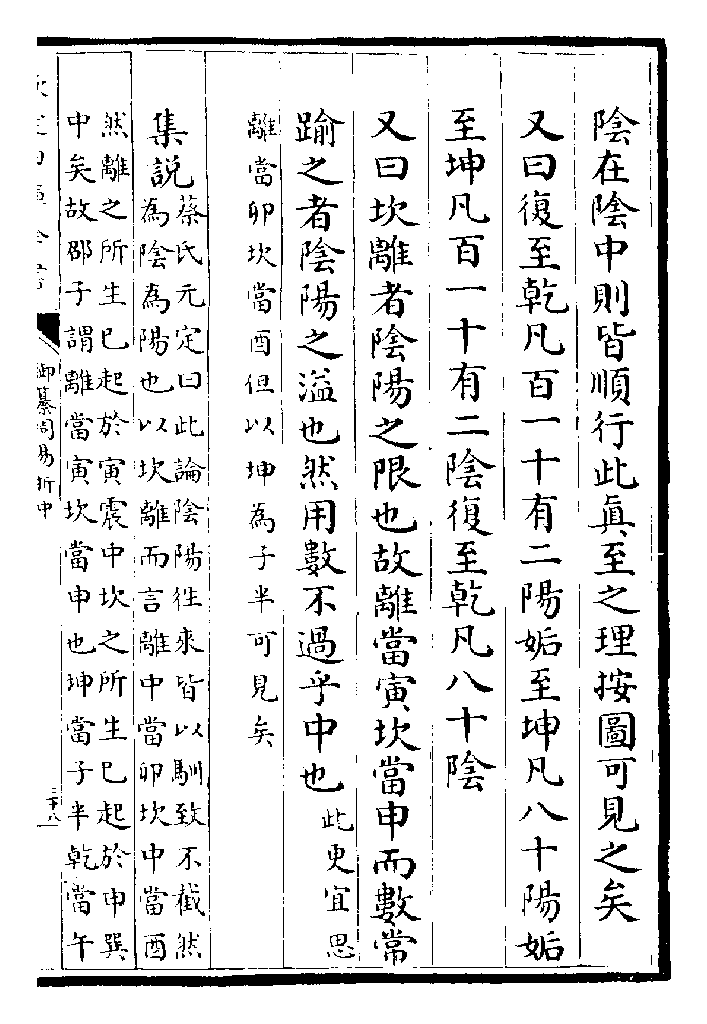 陰在陰中則皆順行此真至之理按圖可見之矣
又曰復至乾凡百一十有二陽姤至坤凡八十陽姤
至坤凡百一十有二陰復至乾凡八十陰
又曰坎離者陰陽之限也故離當寅坎當申而數常
踰之者陰陽之溢也然用數不過乎中也此更宜思
離當卯坎當酉但以坤為子半可見矣
集說蔡氏元定曰此論陰陽往來皆以馴致不截然
為陰為陽也以坎離而言離中當卯坎中當酉
然離之所生巳起於寅震中坎之所生巳起於申巽
中矣故邵子謂離當寅坎當申也坤當子半乾當午
御纂周易折中
三十八